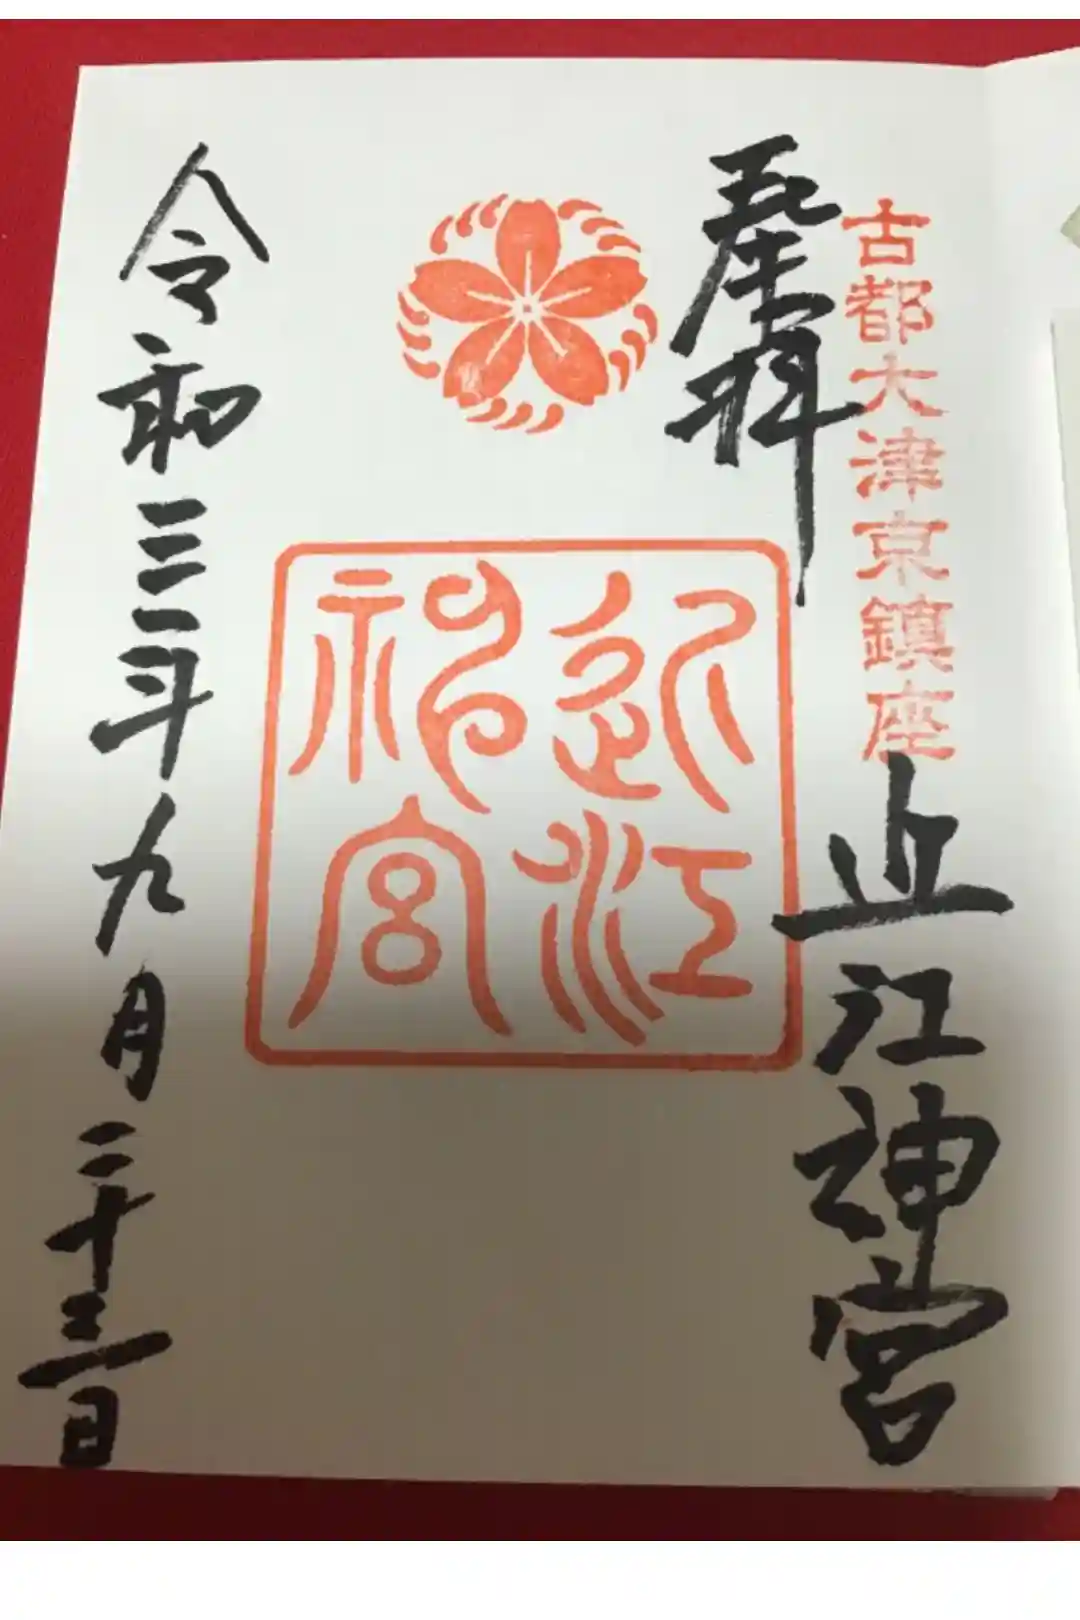 古都大津京鎮座
奉拝
近江神宮
近江
神宮
令和三年九月二十三日